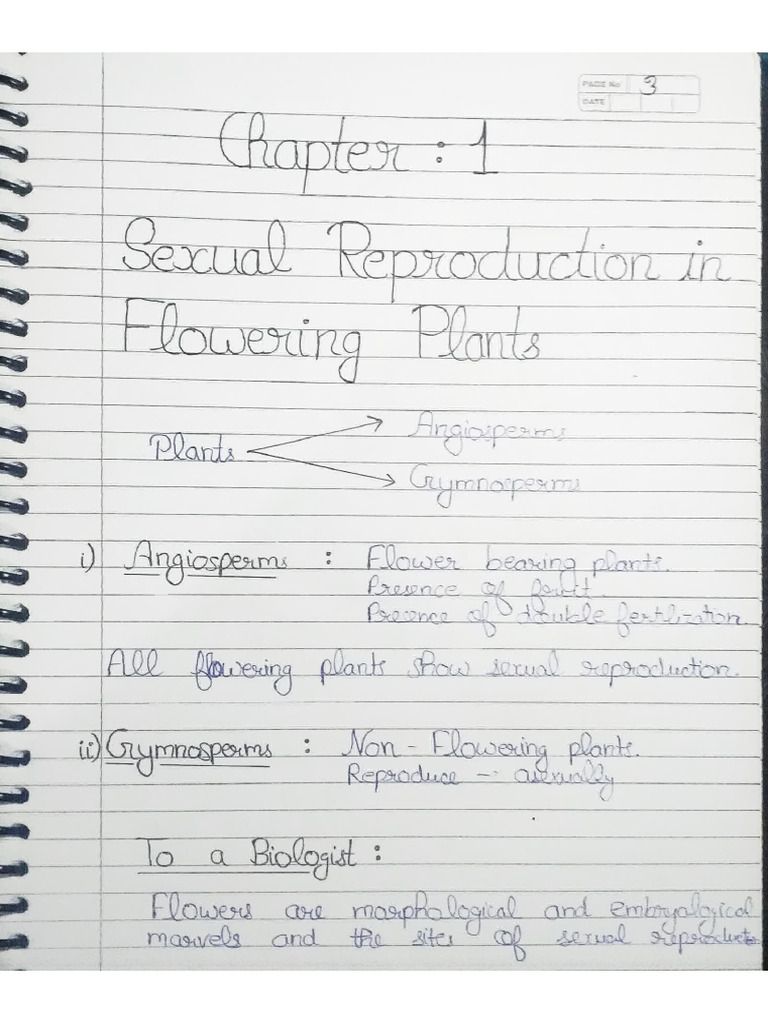 PAGE No 3
DATE
Chapter : 1
Sexual Reproduction in
Flowering Plants
Plants
Angiosperms
Gymnosperms
i) Angiosperms : Flower bearing plants.
Presence of fruit.
Presence of double fertilization
All flowering plants show sexual reproduction.
ii) Gymnosperms : Non - Flowering plants.
Reproduce - asexually
To a Biologist :
Flowers are morphological and embryalogical
marvels and the sites of sexual